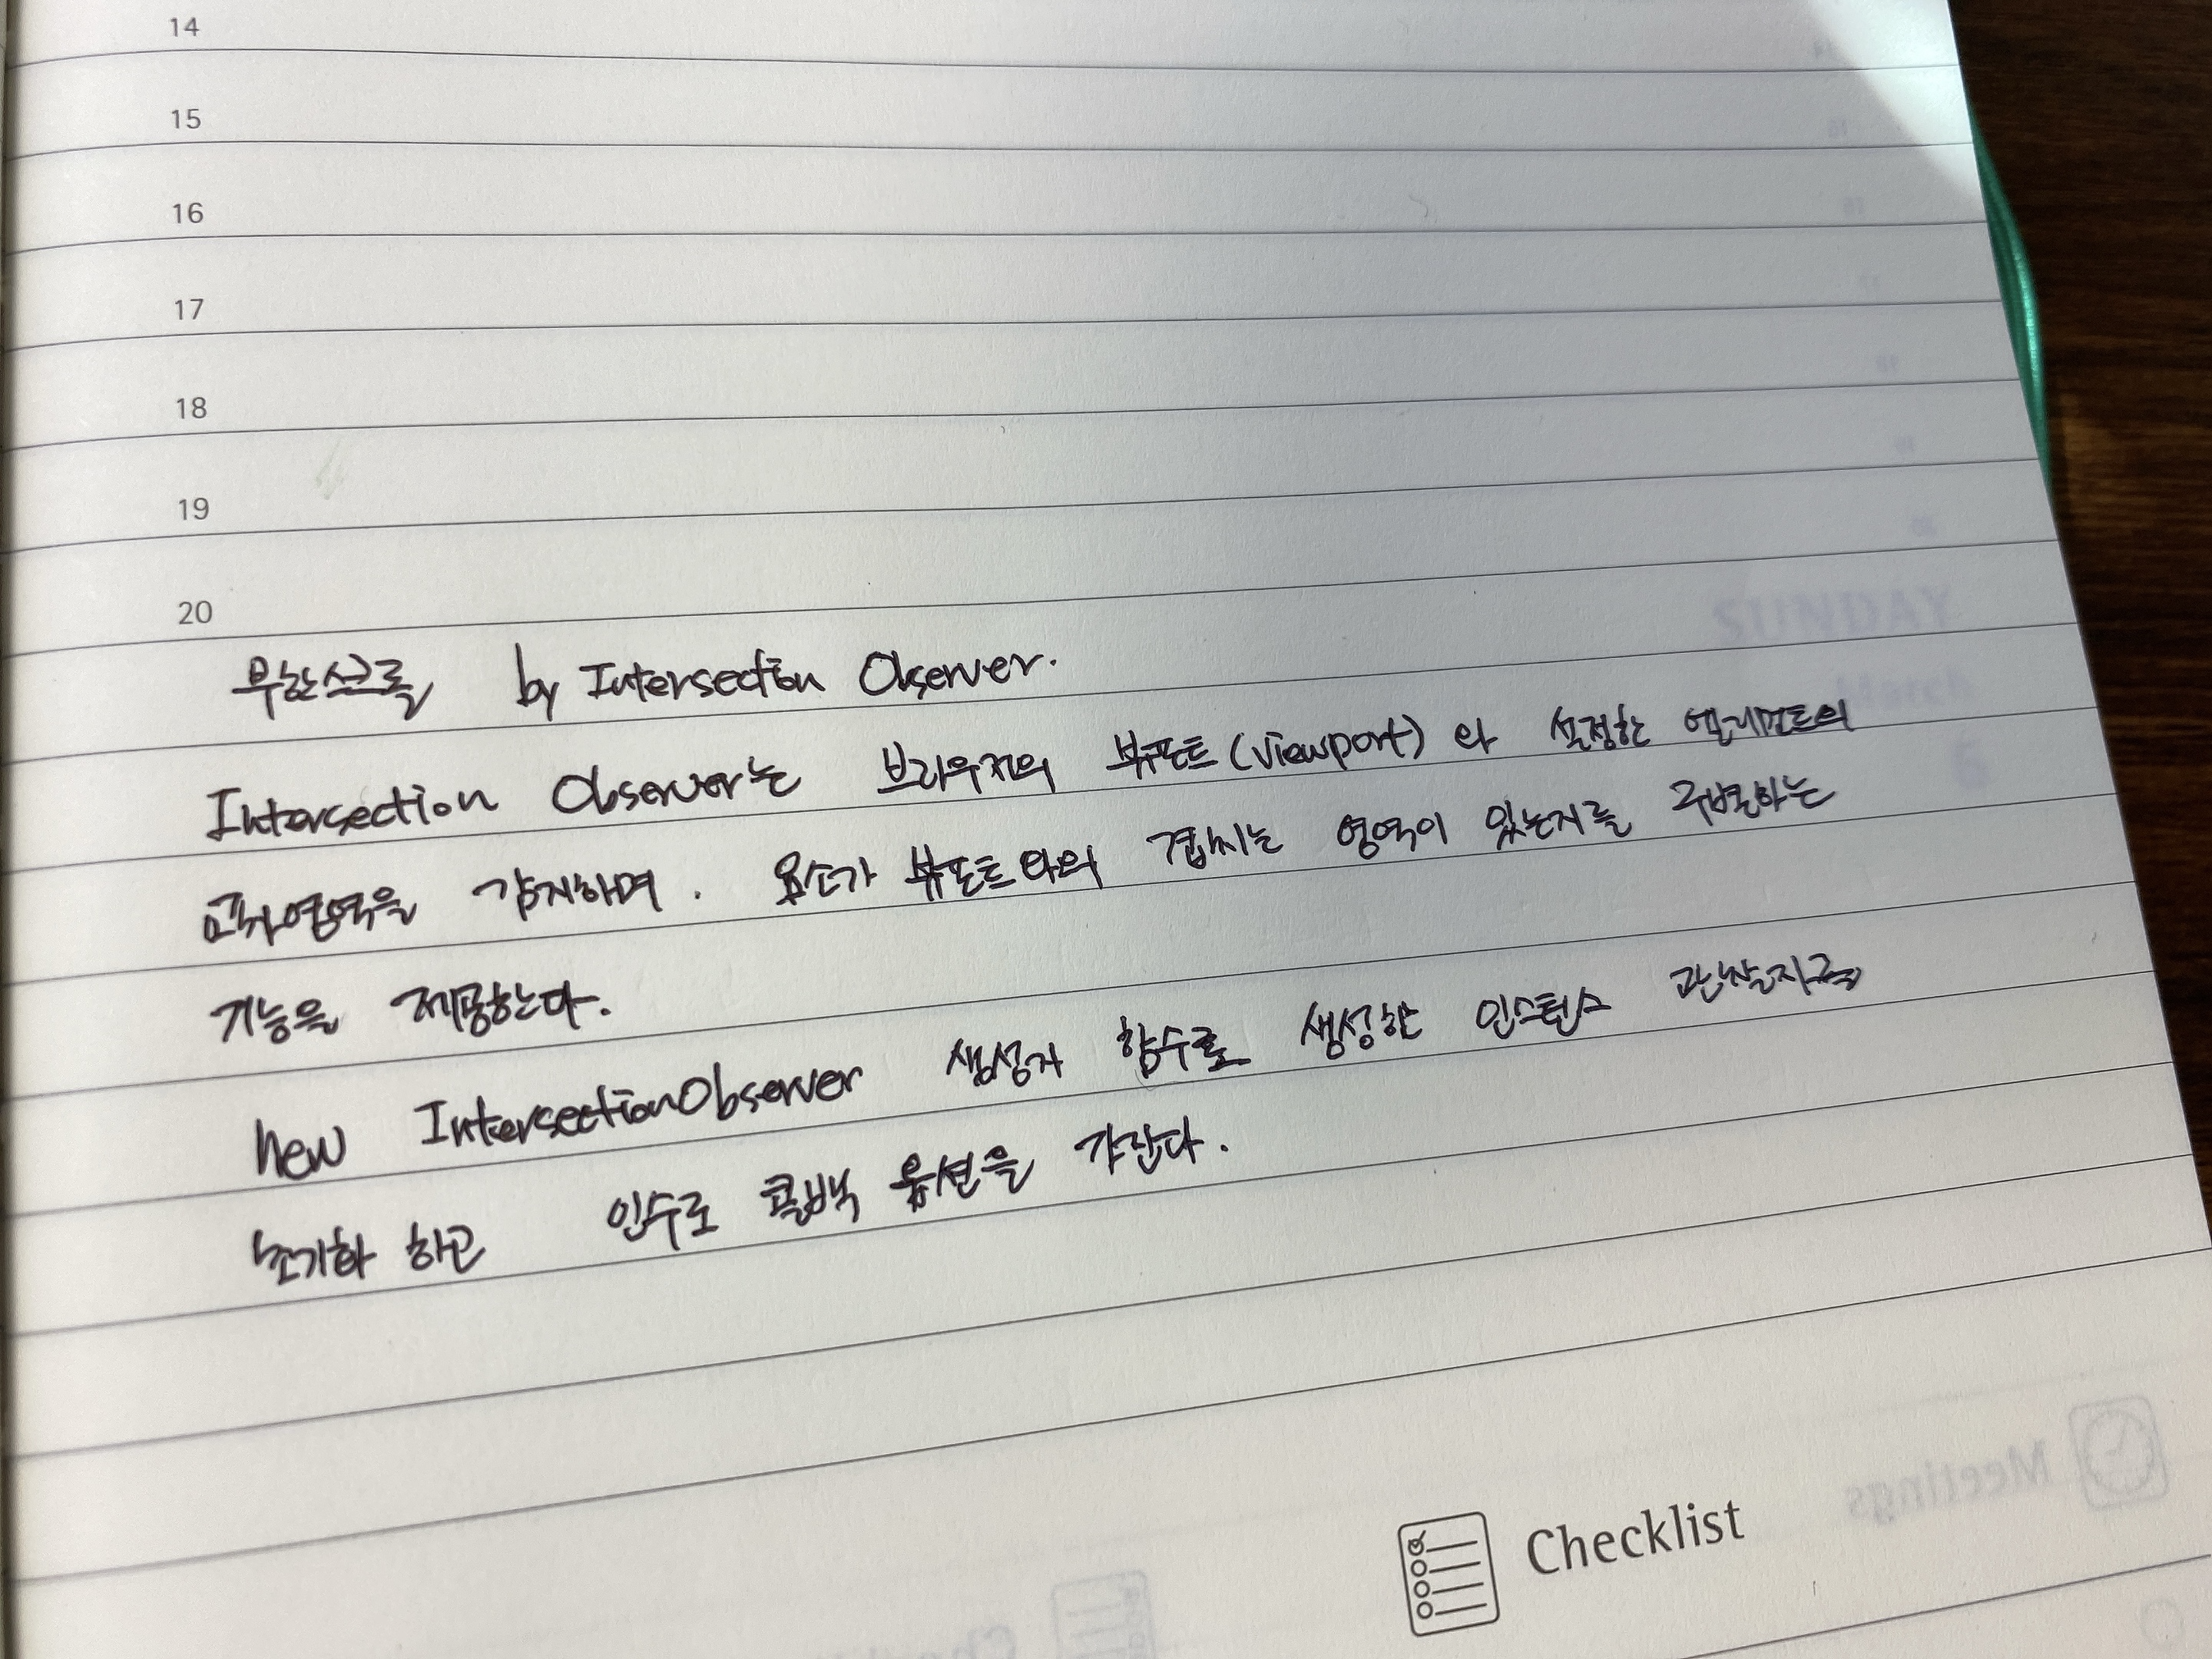 14
15
16
17
18
19
20
무한스크롤 by Intersection Observer.
Intersection Observer는 브라우저의 뷰포트(viewport) 와 설정한 엘리먼트의
교차영역을 감지하며. 요소가 뷰포트와의 겹치는 영역이 있는지를 구별하는
기능을 제공한다.
new IntersectionObserver 생성자 함수로 생성한 인스턴스 관찰자를
초기화 하고 인수로 콜백 옵션을 갖는다.
Checklist